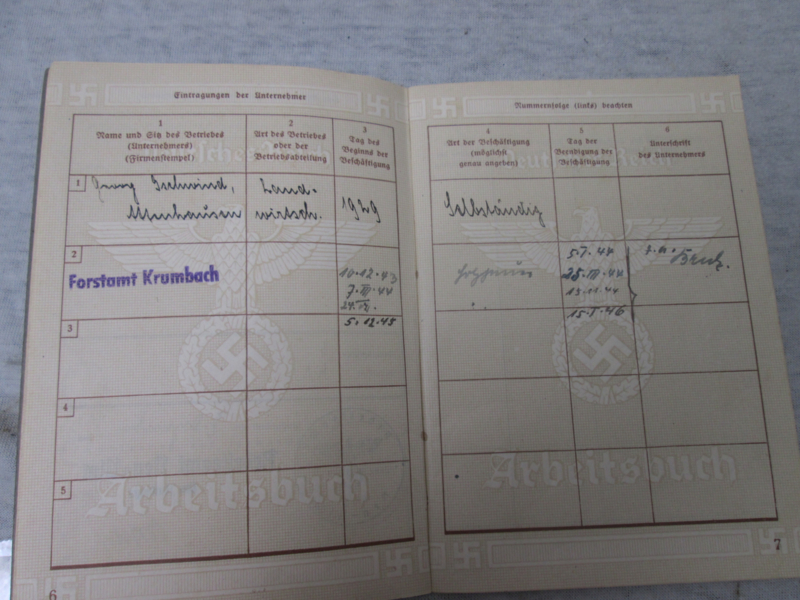 Eintragungen der Unternehmer
1
Name und Sitz des Betriebes
(Unternehmers)
(Firmenstempel)
2
Art des Betriebes
oder der
Betriebsabteilung
3
Tag des
Beginns der
Beschäftigung
1
Georg Gschwind,
Land-
wirtsch.
1929
2
Forstamt Krumbach
10.12.43
7.III.44
5.12.45
3
4
5
Arbeitsbuch
6
Nummernfolge (links) beachten
4
Art der Beschäftigung
(möglichst
genau angeben)
5
Tag der
Beendigung der
Beschäftigung
6
Unterschrift
des Unternehmers
Selbständig
5.I.44
25.III.44
13.11.44
15.I.46
Deutsches Reich
Arbeitsbuch
7